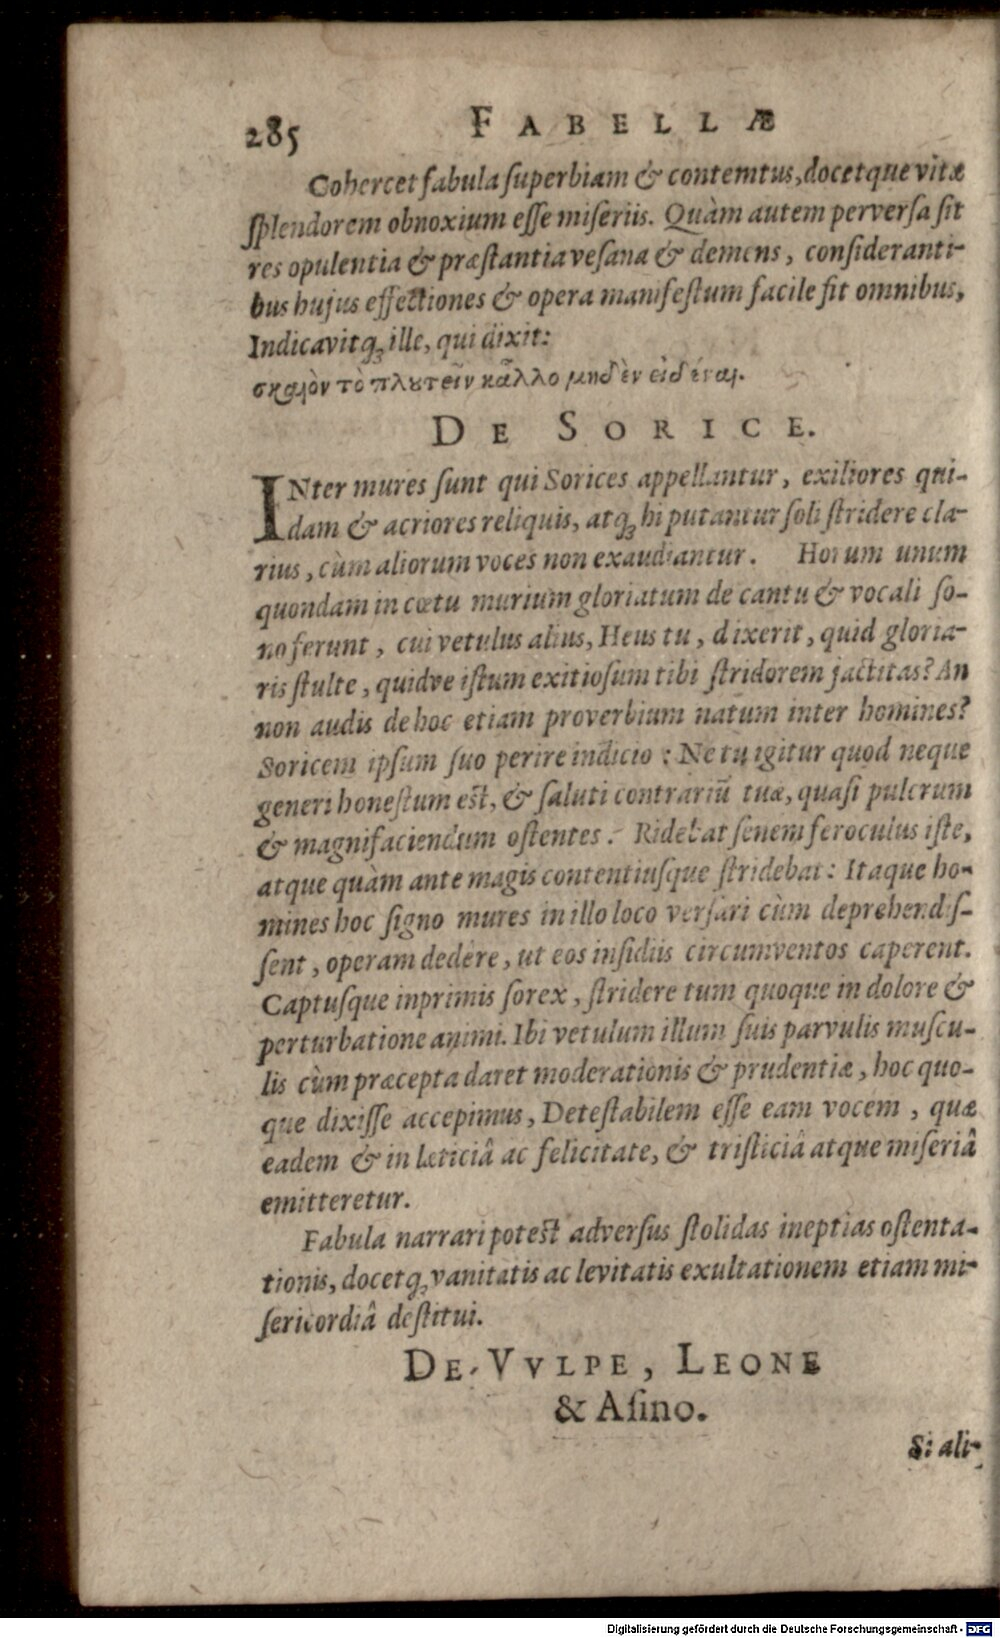 285 FABELLÆ
Cohercet fabula superbiam & contemtus, docetque vitæ
splendorem obnoxium esse miseriis. Quàm autem perversa sit
res opulentia & præstantia vesana & demens, consideranti-
bus hujus effectiones & opera manifestum facile fit omnibus,
Indicavitq; ille, qui dixit:
σκαιὸν τὸ πλουτεῖν κἄλλο μηδὲν εἰδέναι.
DE SORICE.
INter mures sunt qui Sorices appellantur, exiliores qui-
dam & acriores reliquis, atq; hi putantur soli stridere cla-
rius, cùm aliorum voces non exaudiantur. Horum unum
quondam in cœtu murium gloriatum de cantu & vocali so-
no ferunt, cui vetulus alius, Heus tu, dixerit, quid gloria-
ris stulte, quidve istum exitiosum tibi stridorem jactitas? An
non audis de hoc etiam proverbium natum inter homines?
Soricem ipsum suo perire indicio: Ne tu igitur quod neque
generi honestum est, & saluti contrariū tuæ, quasi pulcrum
& magnifaciendum ostentes. Ridebat senem feroculus iste,
atque quàm ante magis contentiusque stridebat: Itaque ho-
mines hoc signo mures in illo loco versari cùm deprehendis-
sent, operam dedere, ut eos insidiis circumventos caperent.
Captusque inprimis sorex, stridere tum quoque in dolore &
perturbatione animi. Ibi vetulum illum suis parvulis muscu-
lis cùm præcepta daret moderationis & prudentiæ, hoc quo-
que dixisse accepimus, Detestabilem esse eam vocem, quæ
eadem & in leticiâ ac felicitate, & tristiciâ atque miseriâ
emitteretur.
Fabula narrari potest adversus stolidas ineptias ostenta-
tionis, docetq; vanitatis ac levitatis exultationem etiam mi-
sericordiâ destitui.
DE VVLPE, LEONE
& Asino.
Si ali-
Digitalisierung gefördert durch die Deutsche Forschungsgemeinschaft - DFG